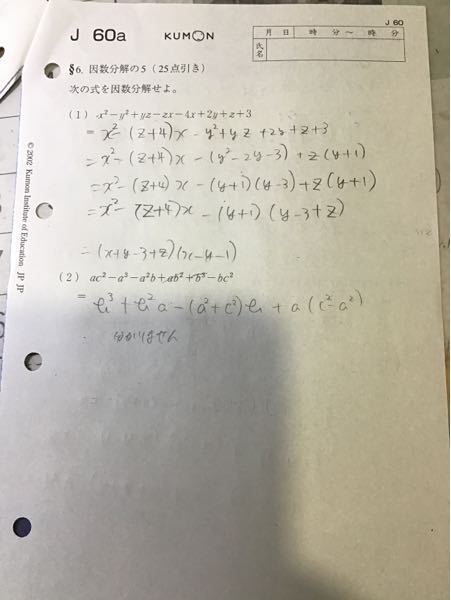 J 60
J 60a KUMON
月 日 時 分 〜 時 分
氏名
§6. 因数分解の5（25点引き）
次の式を因数分解せよ。
(1) x²−y²+yz−zx−4x+2y+z+3
= x²−(z+4)x − y²+yz +2y+z+3
= x²−(z+4)x −(y²−2y−3)+z(y+1)
= x²−(z+4)x −(y+1)(y−3)+z(y+1)
= x²−(z+4)x −(y+1)(y−3+z)
=(x+y−3+z)(x−y−1)
(2) ac²−a³−a²b+ab²+b³−bc²
= b³+b²a−(a²+c²)b + a(c²−a²)
分かりません
© 2002 Kumon Institute of Education JP JP